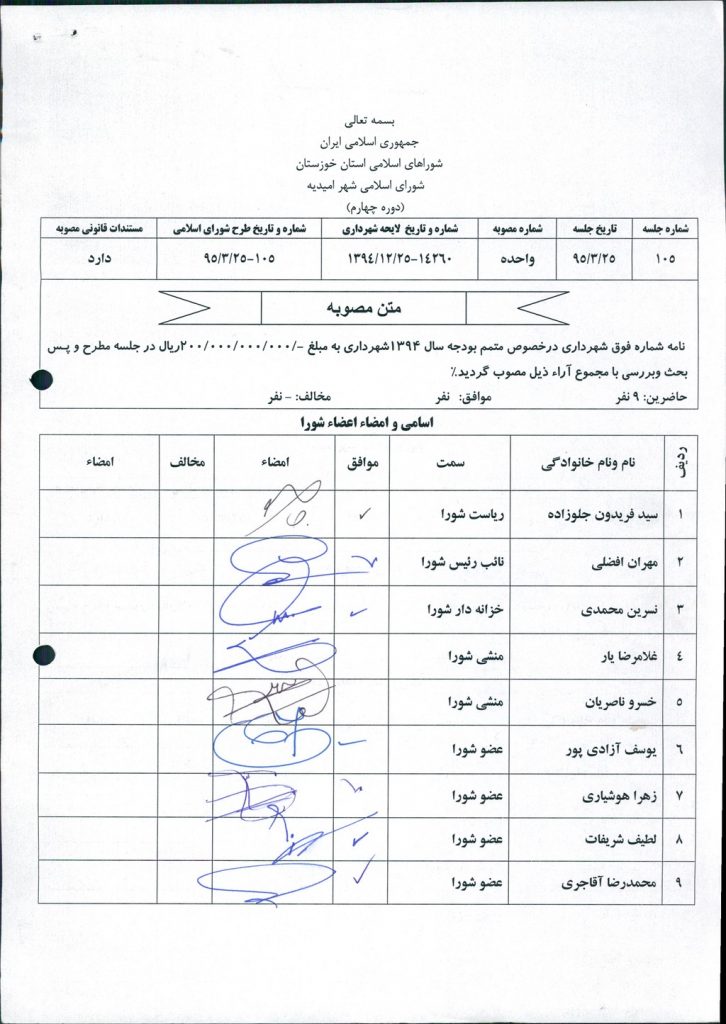 بسمه تعالی
جمهوری اسلامی ایران
شوراهای اسلامی استان خوزستان
شورای اسلامی شهر امیدیه
(دوره چهارم)
شماره جلسه تاریخ جلسه شماره مصوبه شماره و تاریخ لایحه شهرداری شماره و تاریخ طرح شورای اسلامی مستندات قانونی مصوبه
۱۰۵ ۹۵/۳/۲۵ واحده ۱۳۹۴/۱۲/۲۵-۱۴۲۶۰ ۹۵/۳/۲۵-۱۰۵ دارد
متن مصوبه
نامه شماره فوق شهرداری درخصوص متمم بودجه سال ۱۳۹۴شهرداری به مبلغ -/۲۰۰/۰۰۰/۰۰۰/۰۰۰ریال در جلسه مطرح و پس
بحث وبررسی با مجموع آراء ذیل مصوب گردید٪
حاضرین: ۹ نفر موافق: نفر مخالف: - نفر
اسامی و امضاء اعضاء شورا
ردیف نام ونام خانوادگی سمت موافق امضاء مخالف امضاء
۱ سید فریدون جلوزاده ریاست شورا
۲ مهران افضلی نائب رئیس شورا
۳ نسرین محمدی خزانه دار شورا
۴ غلامرضا یار منشی شورا
۵ خسرو ناصریان منشی شورا
۶ یوسف آزادی پور عضو شورا
۷ زهرا هوشیاری عضو شورا
۸ لطیف شریفات عضو شورا
۹ محمدرضا آقاجری عضو شورا